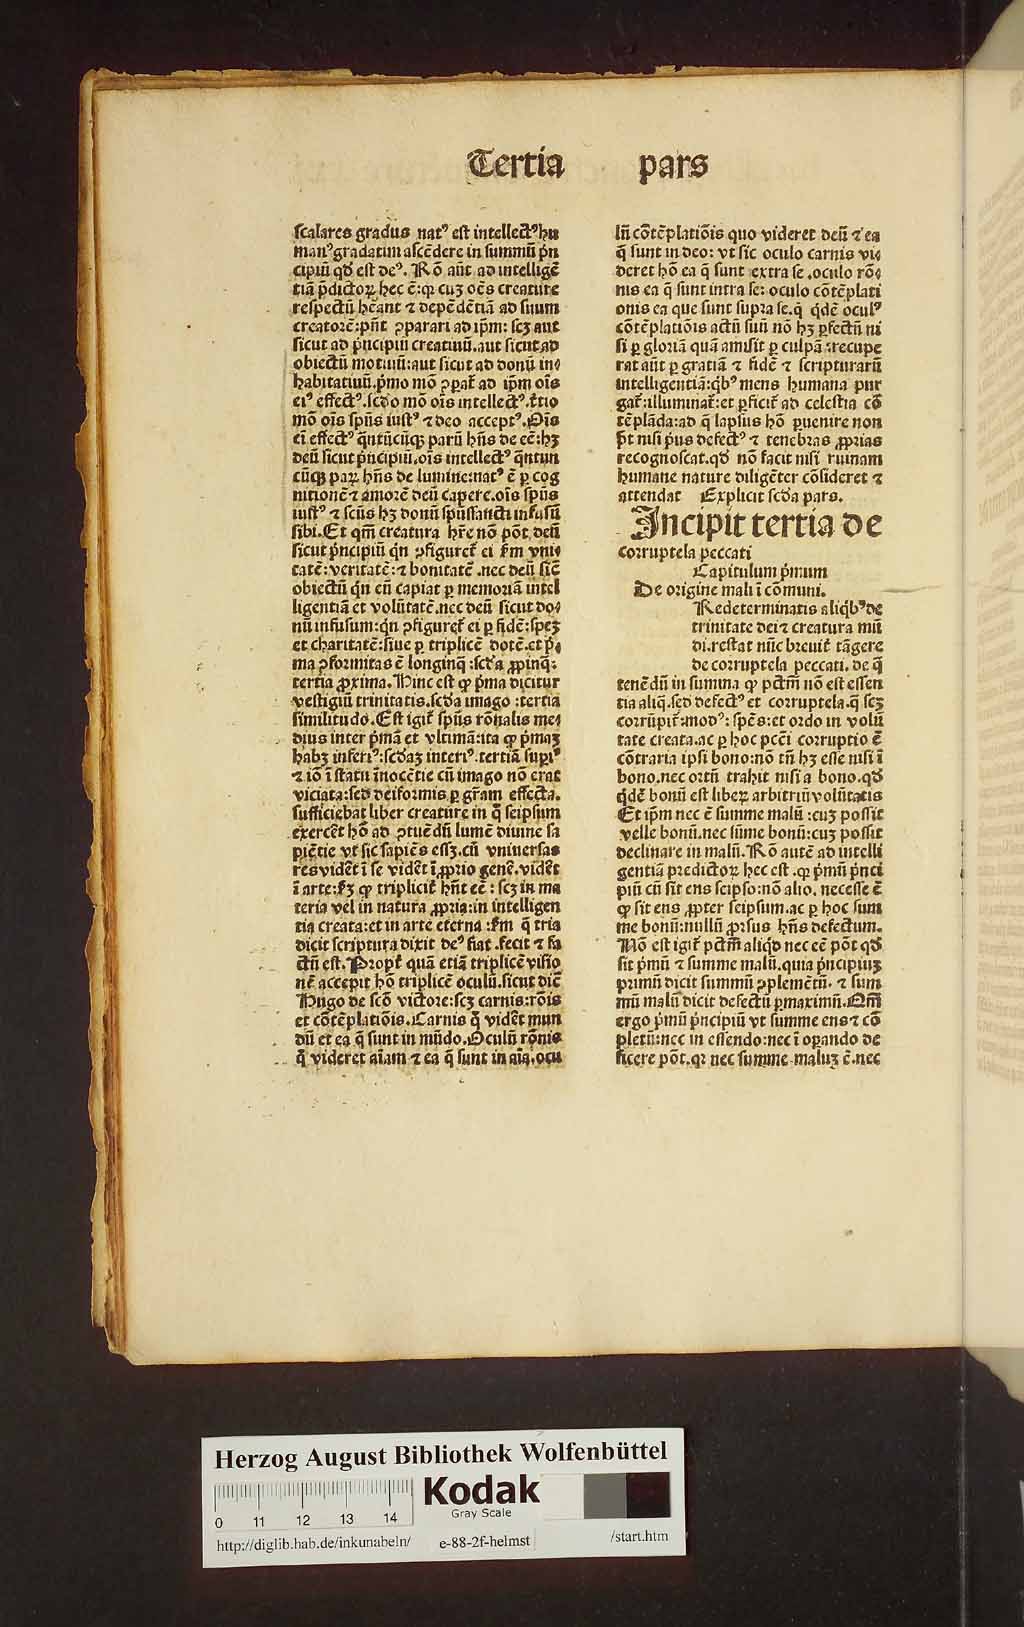 Tertia pars
scalares gradus natꝰ est intellectꝰ hu
manꝰ gradatim ascēdere in summū p̄n
cipiū qd̄ est deꝰ. Rō aūt ad intelligē
tiā p̄dictoꝝ hec ē: ꝙ cuꝫ oēs creature
respectū hēant ⁊ depēdētiā ad suum
creatorē: pn̄t ꝯparari ad ip̄m: scꝫ aut
sicut ad p̄ncipiū creatiuū. aut sicut ad
obiectū motiuū: aut sicut ad donū in⸗
habitatiuū. p̄mo mō ꝯpat̄ ad ip̄m oīs
eiꝰ effectꝰ. scd̄o mō oīs intellectꝰ. t̄tio
mō oīs spūs iustꝰ ⁊ deo acceptꝰ. Oīs
ei effectꝰ qn̄tūcūqꝫ parū hn̄s de eē: hꝫ
deū sicut p̄ncipiū. oīs intellectꝰ qn̄tun
cūqꝫ paꝝ hn̄s de lumine: natꝰ ē ꝑ cog
nitionē ⁊ amorē deū capere. oīs spūs
iustꝰ ⁊ scūs hꝫ donū spūssancti infusū
sibi. Et qm̄ creatura hr̄e nō pōt deū
sicut p̄ncipiū qn̄ ꝯfiguret̄ ei s̄m vni⸗
tatē: veritatē: ⁊ bonitatē. nec deū sic̄
obiectū qn̄ eū capiat ꝑ memoriā intel
ligentiā et volūtatē. nec deū sicut do⸗
nū infusum: qn̄ ꝯfiguret̄ ei ꝑ fidē: speꝫ
et charitatē: siue ꝑ triplicē dotē. et p̄i⸗
ma ꝯformitas ē longinq̄: scd̄a ꝓpinq̄:
tertia ꝓxima. Hinc est ꝙ p̄ma dicitur
vestigiū trinitatis. scd̄a imago: tertia
similitudo. Est igit̄ spūs rōnalis me⸗
dius inter p̄mā et vltimā: ita ꝙ p̄maꝫ
habꝫ inferiꝰ: scd̄aꝫ interiꝰ. tertiā supiꝰ
⁊ iō ī statu īnocētie cū imago nō erat
viciata: sed deiformis ꝑ gr̄am effecta.
sufficiebat liber creature in q̄ seipsum
exercēt hō ad ꝯtuēdū lumē diuine sa
piētie vt sic sapiēs essꝫ. cū vniuersas
res vidēt ī se vidēt ī ꝓprio genē. vidēt
ī arte: s̄ꝫ ꝙ triplicit̄ hn̄t eē: scꝫ in ma
teria vel in natura ꝓpria: in intelligen
tia creata: et in arte eterna: s̄m q̄ tria
dicit scriptura dixit deꝰ fiat. fecit ⁊ fa
ctū est. Propt̄ quā etiā triplicē visio
nē accepit hō triplicē oculū. sicut dic̄
Hugo de scō victore: scꝫ carnis: rōis
et cōtēplatiōis. Carnis q̄ vidēt mun
dū et ea q̄ sunt in mūdo. Oculū rōnis
q̄ videret aīam ⁊ ea q̄ sunt in aīa. ocu
lū cōtēplatiōis quo videret deū ⁊ ea
q̄ sunt in deo: vt sic oculo carnis vi⸗
deret hō ea q̄ sunt extra se. oculo rō⸗
nis ea q̄ sunt intra se: oculo cōtēplati
onis ea que sunt supra se. q̄ qdē oculꝰ
cōtēplatiōis actū suū nō hꝫ ꝑfectū ni
si ꝑ gloriā quā amisit ꝑ culpā: recupe
rat aūt ꝑ gratiā ⁊ fidē ⁊ scripturarū
intelligentiā: qb̄ꝰ mens humana pur
gat̄: illuminat̄: et ꝑficit̄ ad celestia cō
tēplāda: ad q̄ lapsus hō ꝑuenire non
pōt nisi p̄us defectꝰ ⁊ tenebras ꝓprias
recognoscat. qd̄ nō facit nisi ruinam
humane nature diligēter cōsideret ⁊
attendat Explicit scd̄a pars.
Incipit tertia de
corruptela peccati
Capitulum p̄mum
De origine mali ī comuni.
Redeterminatis aliqb̄ꝰ de
trinitate dei ⁊ creatura mū
di. restat nūc breuit̄ tāgere
de corruptela peccati. de q̄
tenēdū in summa ꝙ pctm̄ nō est essen
tia aliq̄. sed defectꝰ et corruptela. q̄ scꝫ
corrūpit̄: modꝰ: spēs: et ordo in volū
tate creata. ac ꝑ hoc pcc̄i corruptio ē
cōtraria ipsi bono: nō tn̄ hꝫ esse nisi ī
bono. nec ortū trahit nisi a bono. qd̄
qdē bonū est liberꝝ arbitriū volūtatis
Et ip̄m nec ē summe malū: cuꝫ possit
velle bonū. nec sūme bonū: cuꝫ possit
declinare in malū. Rō autē ad intelli
gentiā predictoꝝ hec est. ꝙ p̄mū p̄nci
piū cū sit ens seipso: nō alio. necesse ē
ꝙ sit ens ꝓpter seipsum. ac ꝑ hoc sum
me bonū: nullū ꝓrsus hn̄s defectum.
Nō est igit̄ pctm̄ aliqd̄ nec eē pōt qd̄
sit p̄mū ⁊ summe malū. quia p̄ncipiuꝫ
primū dicit summū ꝯplemētū. ⁊ sum
mū malū dicit defectū ꝑmaximū. Qm̄
ergo p̄mū p̄ncipiū vt summe ens ⁊ cō
pletū: nec in essendo: nec ī operando de
ficere pōt. qꝛ nec summe maluꝫ ē. nec
Herzog August Bibliothek Wolfenbüttel
Kodak
Gray Scale
0 11 12 13 14
http://diglib.hab.de/inkunabeln/ e-88-2f-helmst /start.htm